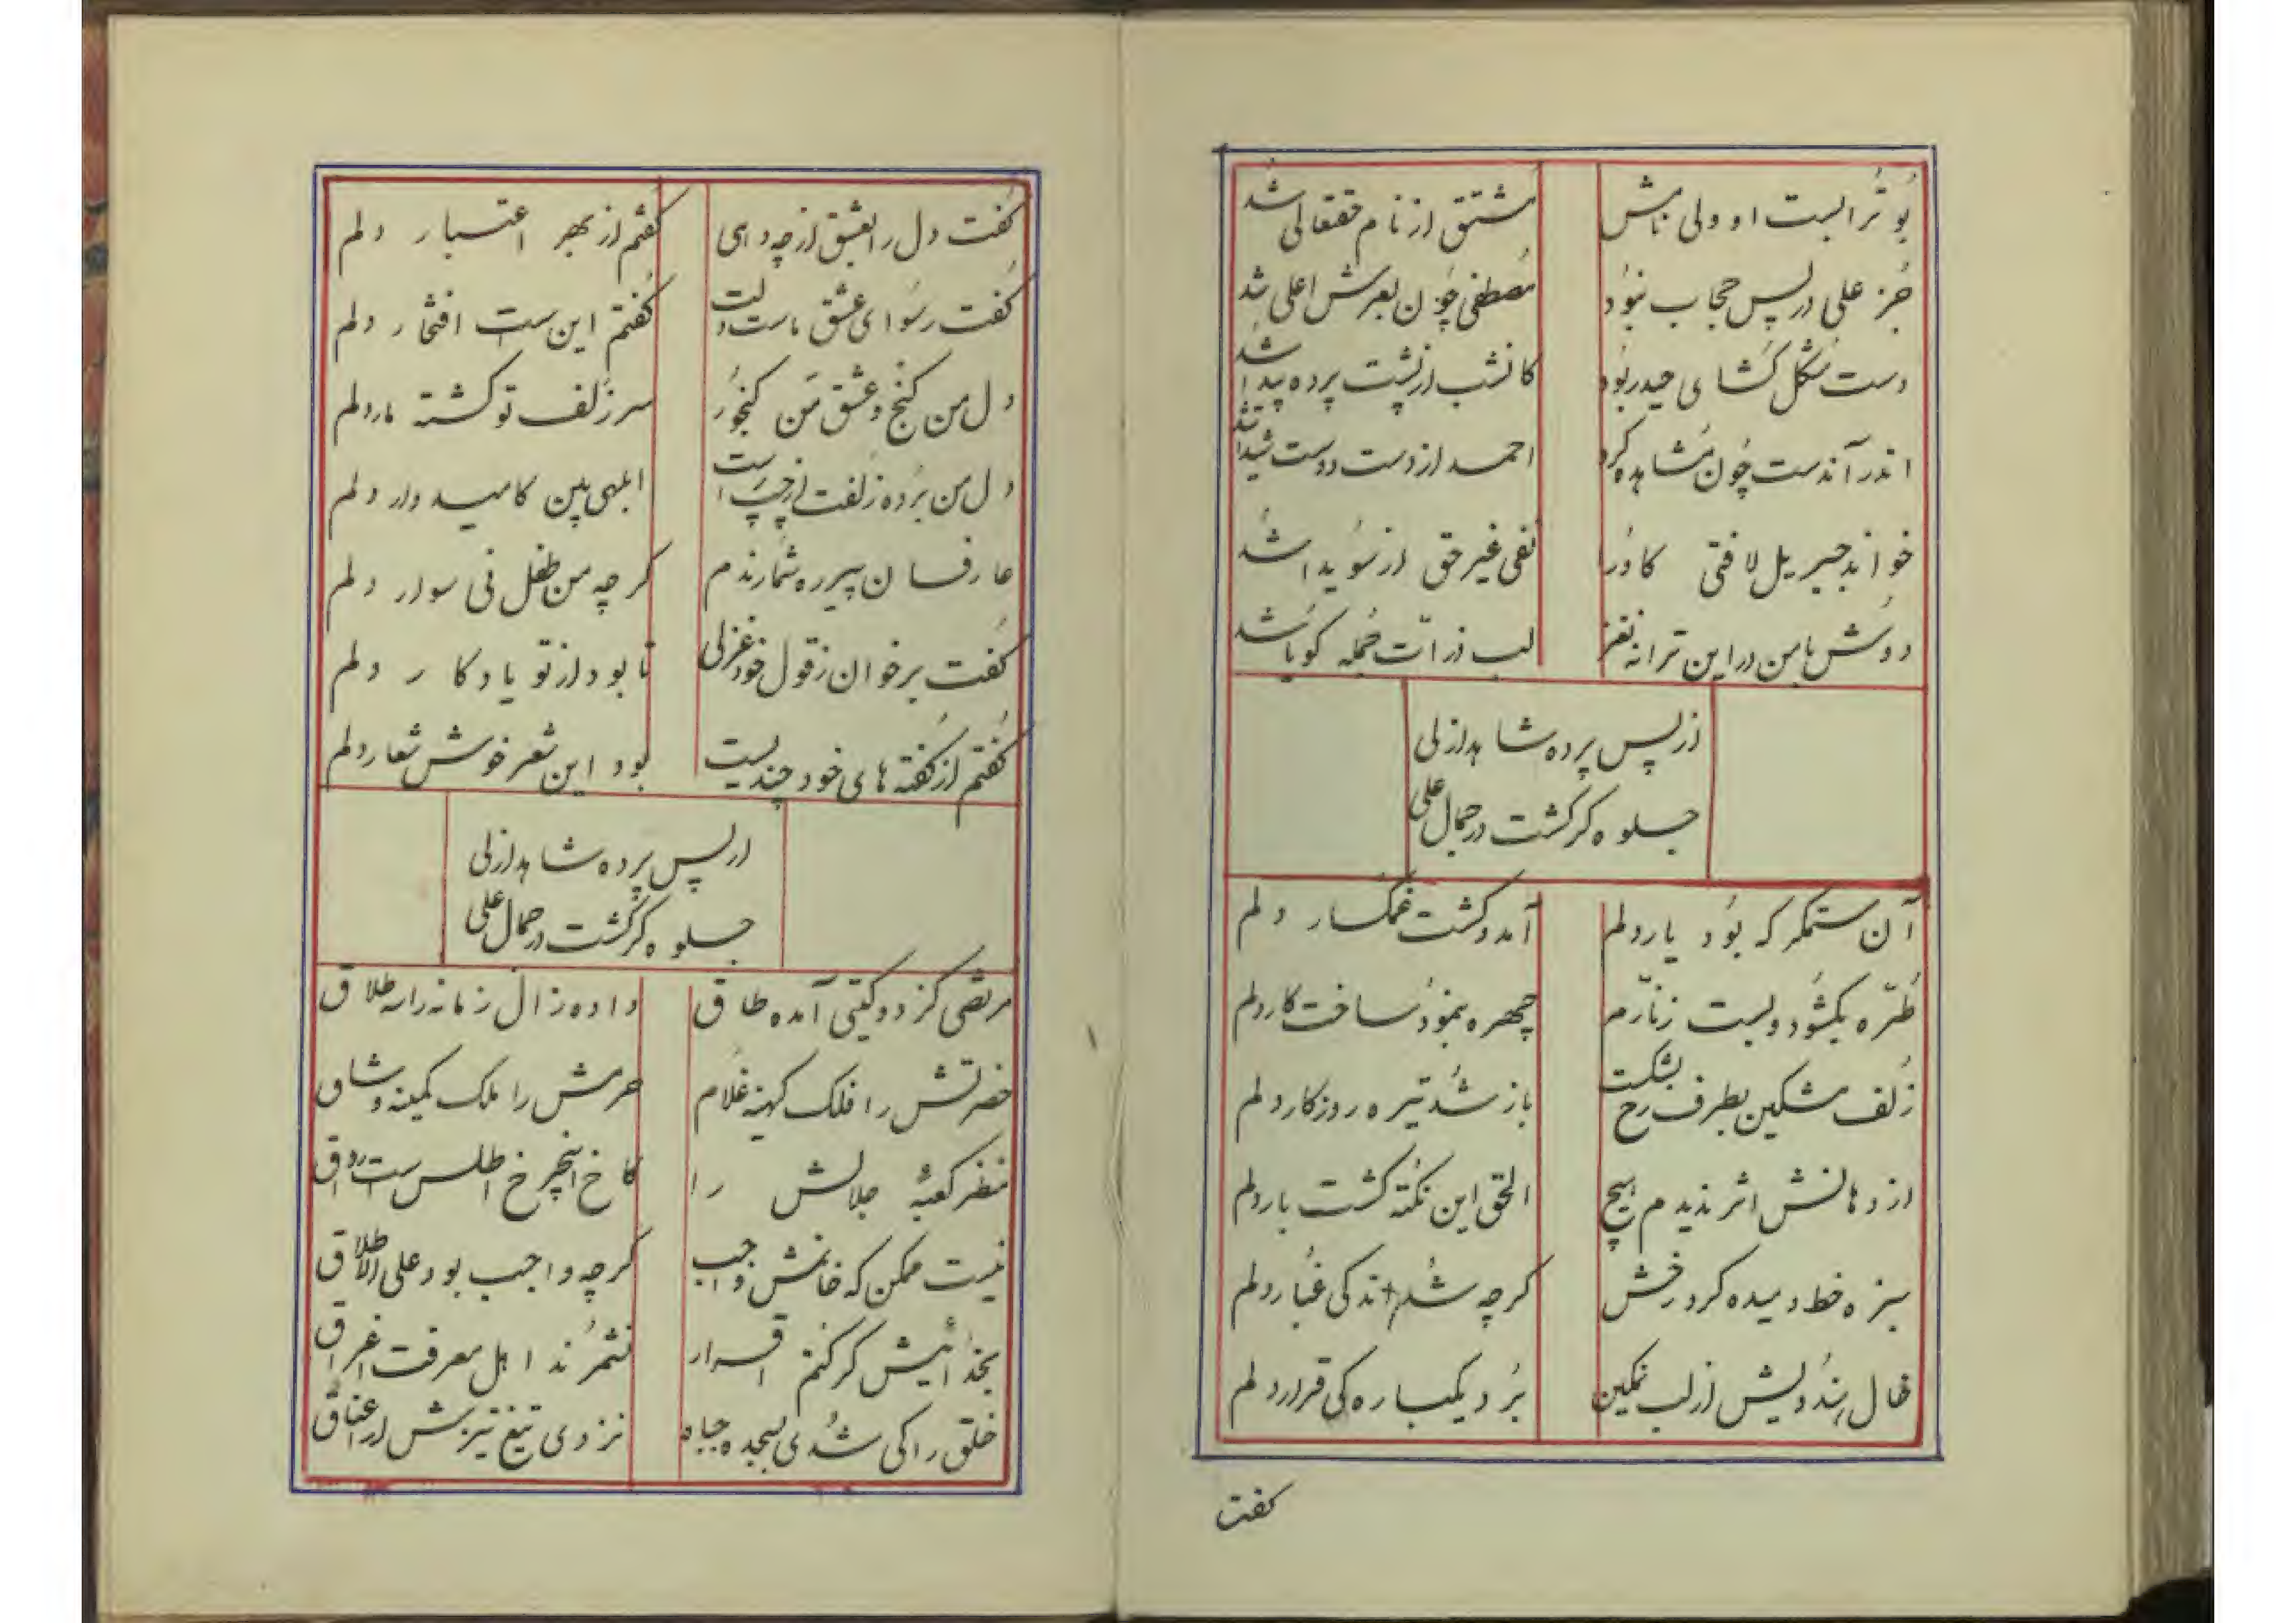 بُو تُرابست او ولی نامش مشتق از نام حقتعالی شد
جُز علی در پس حجاب نبُود مُصطفی چُون بعرش اعلی شد
دست مُشکل کُشای حیدر بُود کانشب از پُشت پرده پیدا شد
اندر آندست چُون مُشاهده کرد احمد از دست دوست شیدا شد
خواند جبریل لا فتی کاو را نفی غیر حق از سُویدا شد
دوش با من در این ترانه نغز لب ذرات جُمله کویا شد
از پس پرده شاهد ازلی
جلوه کر کشت در جمال علی
آن ستمکر که بُود یار دلم آمد و کشت غمکسار دلم
طُرّه بکشُود و بست زنّارم چهره بنمُود ساخت کار دلم
زُلف مشکین بطرف رخ بشکست باز شُد تیره روزکار دلم
از دهانش اثر ندیدم هیچ الحق این نُکته کشت بار دلم
سبزه خط دمیده کرد رخش کرچه شُد اندکی غُبار دلم
خال هندُویش از لب نمکین بُرد یکباره کی قرار دلم
کفت
کُفت دل را بعشق از چه دهی کفتم از بهر اعتبار دلم
کُفت رسُوای عشق ماست دلت کُفتم این ست افتخار دلم
دل من کنج و عشق من کنجُور سر زلف تو کشته مار دلم
دل من بُرده زُلفت از چپ و راست ابلهی بین کامیدوار دلم
عارفان پیر ره شمارندم کرچه من طفل نی سوار دلم
کُفت برخوان ز قول خود غزلی تا بود از تو یادکار دلم
کُفتم از کُفته های خود چندیست بود این شعر خوش شعار دلم
از پس پرده شاهد ازلی
جلوه کر کشت در جمال علی
مرتضی کز دو کیتی آمده طاق داده زال زمانه را سه طلاق
حضرتش را فلک کهینه غلام حرمش را ملک کمینه وشاق
منظر کعبهٔ جلالش را کاخ این چرخ اطلس ست رواق
نیست ممکن که خوانمش واجب کرچه واجب بود علی الاطلاق
بخدائیش کر کنم اقرار نشمرُند اهل معرفت اغراق
خلق را کی شُدی بسجده جباه نزدی تیغ تیزش ار اعناق